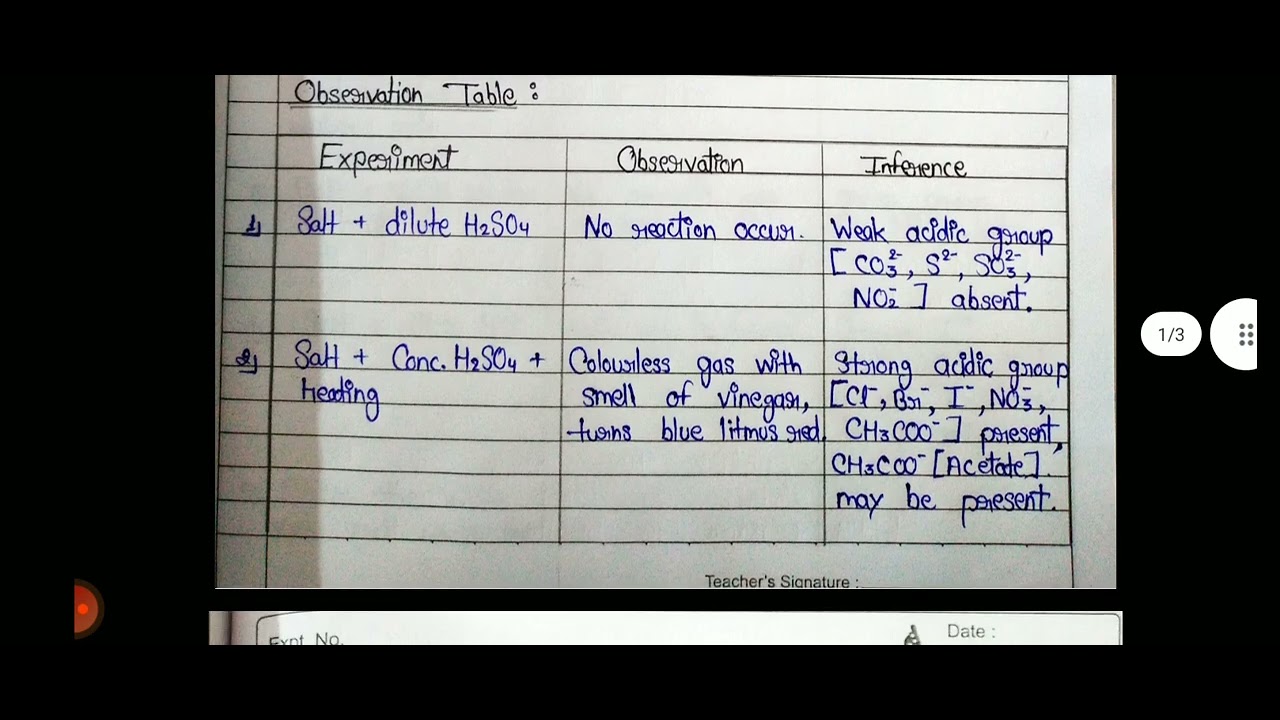 Observation Table :
Experiment Observation Inference
1) Salt + dilute H₂SO₄ No reaction occur. Weak acidic group
[ CO₃²⁻, S²⁻, SO₃²⁻,
NO₂⁻ ] absent.
2) Salt + Conc. H₂SO₄ + Colourless gas with Strong acidic group
heating smell of vinegar, [Cl⁻, Br⁻, I⁻, NO₃⁻,
turns blue litmus red. CH₃COO⁻ ] present,
CH₃COO⁻ [Acetate].
may be present.
1/3
Teacher's Signature :
Expt. No.
Date :